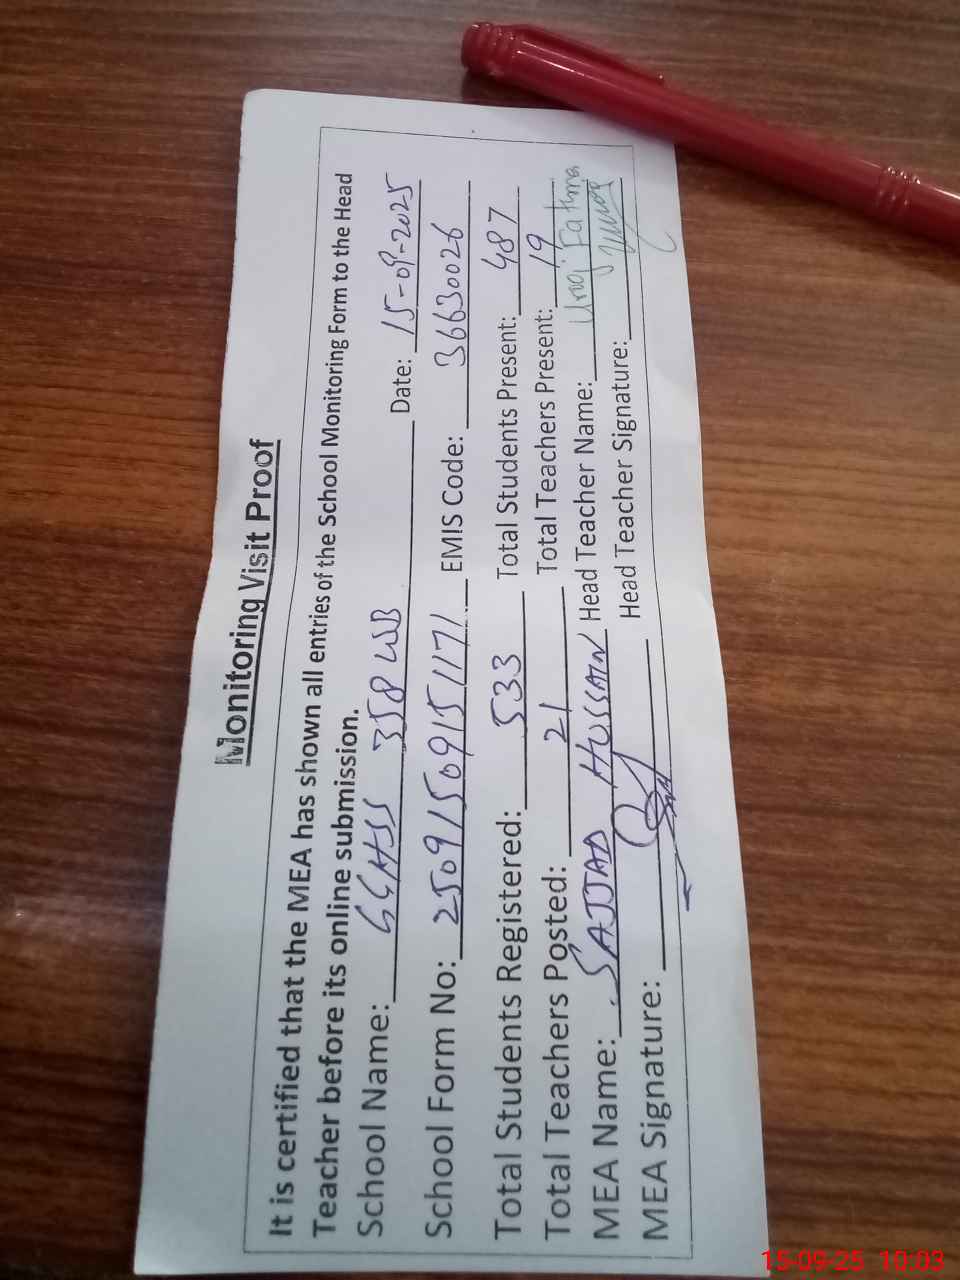 Monitoring Visit Proof
It is certified that the MEA has shown all entries of the School Monitoring Form to the Head
Teacher before its online submission.
School Name: GGHSS 358 WB Date: 15-09-2025
School Form No: 25091509151171 EMIS Code: 36630026
Total Students Registered: 533 Total Students Present: 487
Total Teachers Posted: 21 Total Teachers Present: 19
MEA Name: SAJJAD HUSSAIN Head Teacher Name: Urooj Fatima
MEA Signature: Head Teacher Signature:
15-09-25 10:03